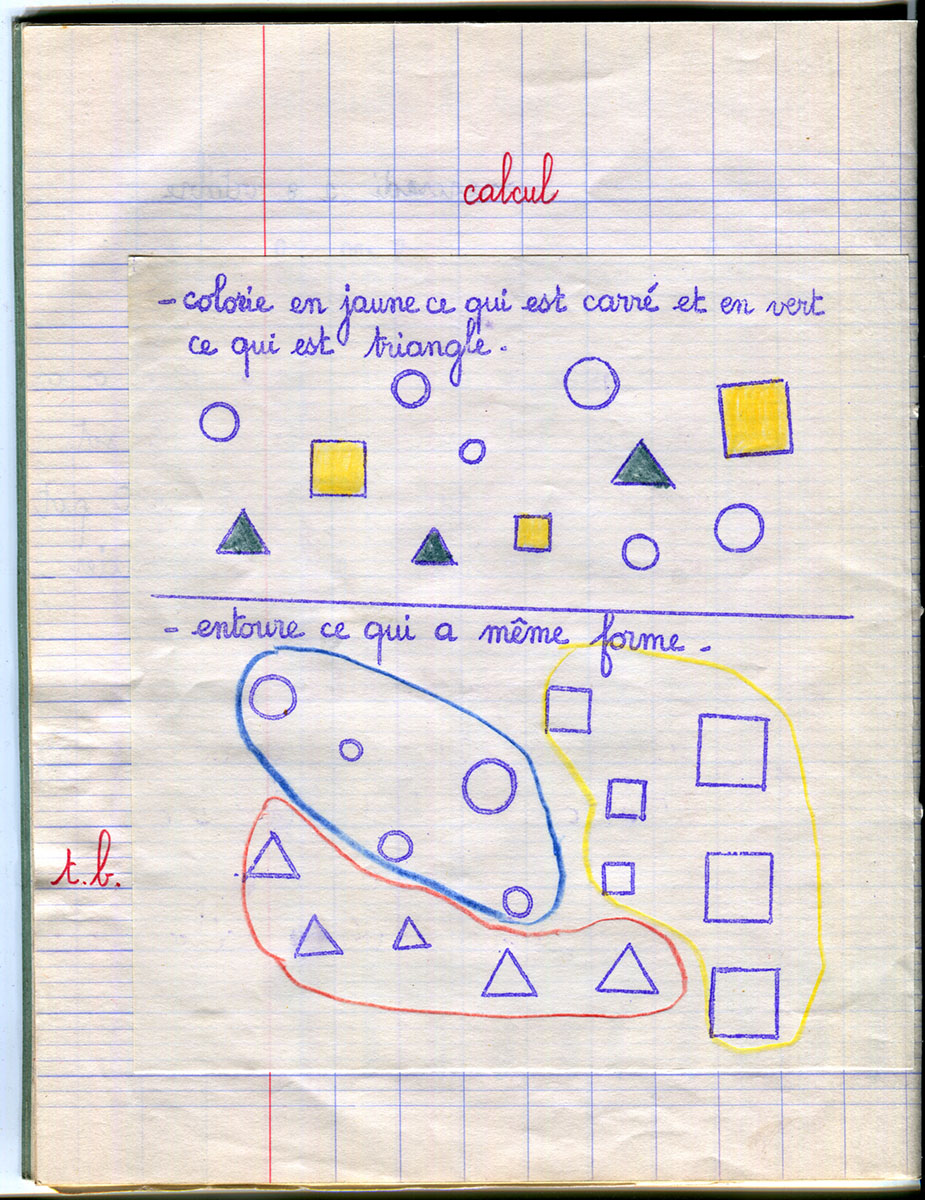 calcul
- colorie en jaune ce qui est carré et en vert
ce qui est triangle.
- entoure ce qui a même forme.
t.b.